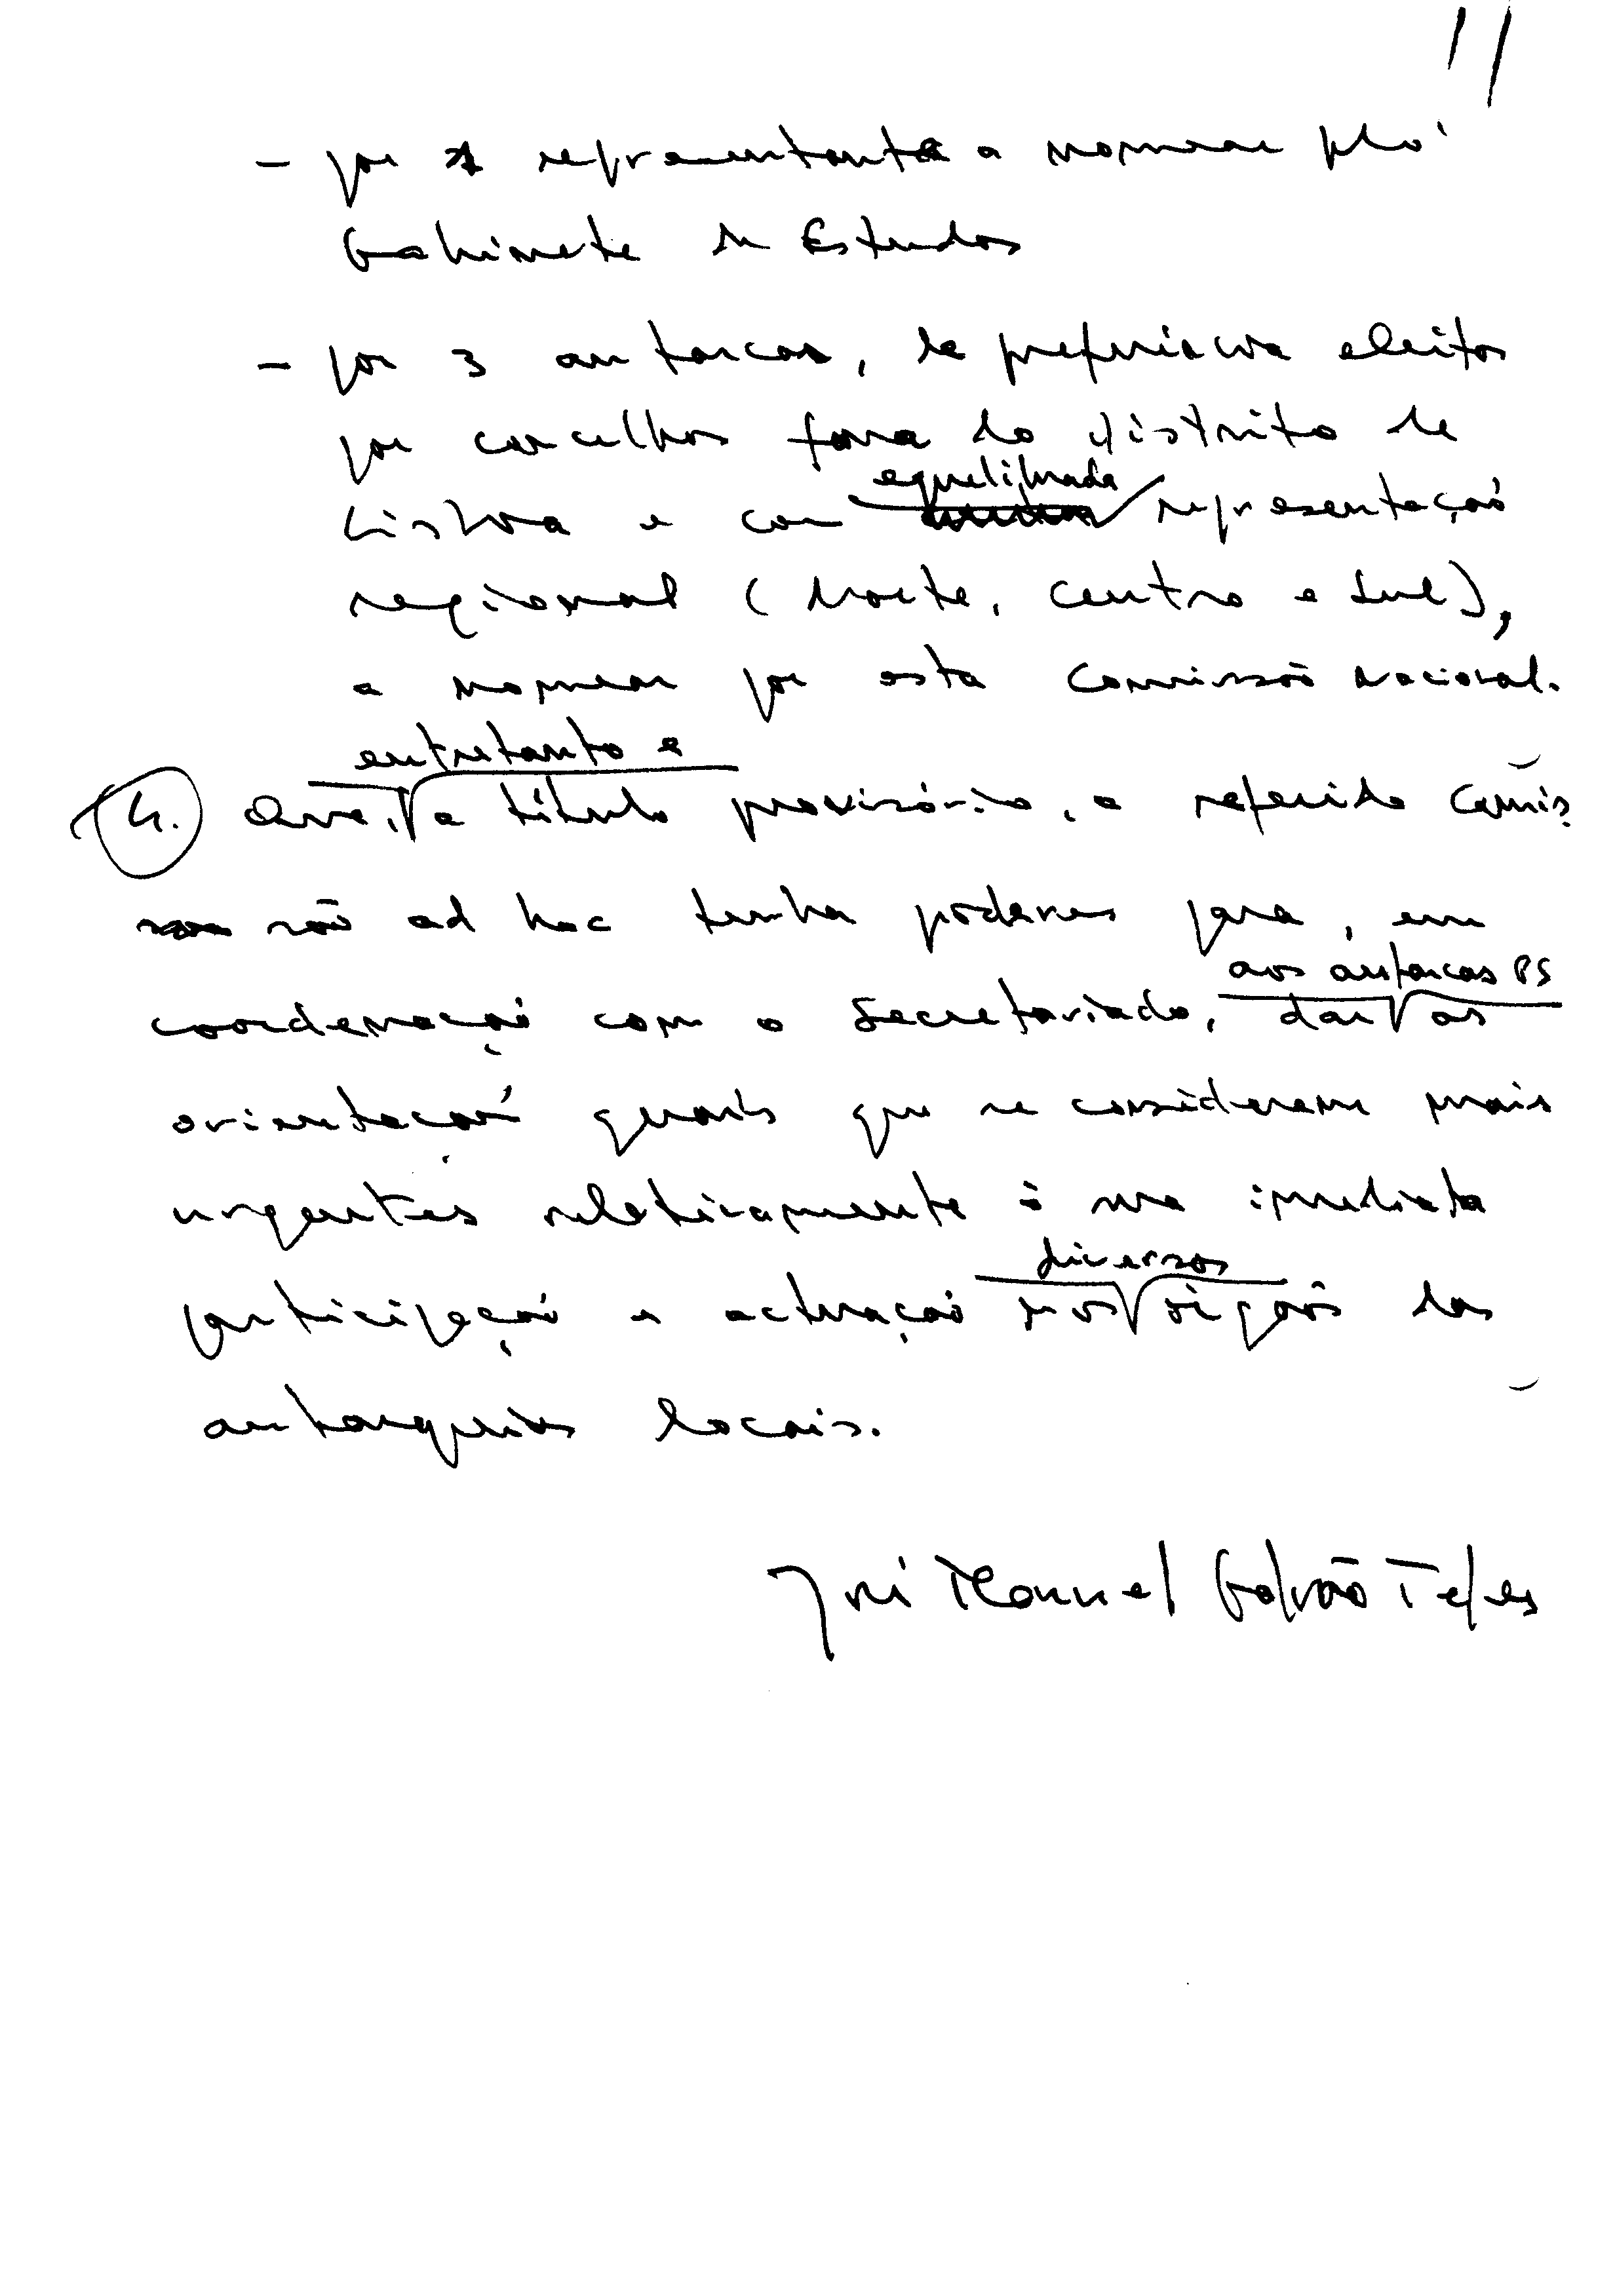 11
- por 1 representante a nomear pelo
Gabinete de Estudos
- por 3 autarcas, de preferência eleitos
por concelhos fora do distrito de
Lisboa e com equilibrada representação
regional (Norte, Centro e Sul),
a nomear por esta Comissão Nacional.
entretanto e
4. Que, a título provisório, a referida Comis-
são ad hoc tenha poderes para, em
aos autarcas PS
coordenação com o Secretariado, dar as
orientações gerais que se considerem mais
urgentes relativamente à sua imediata
diversos
participação e actuação nos orgãos das
autarquias locais.
José Manuel Galvão Teles